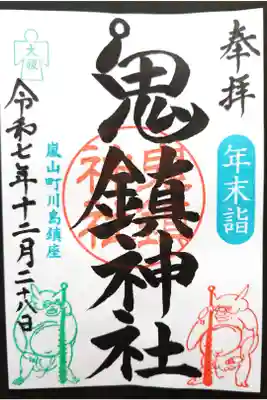 奉拝
年末詣
鬼鎮神社
嵐山町川島鎮座
大祓
令和七年十二月二十八日